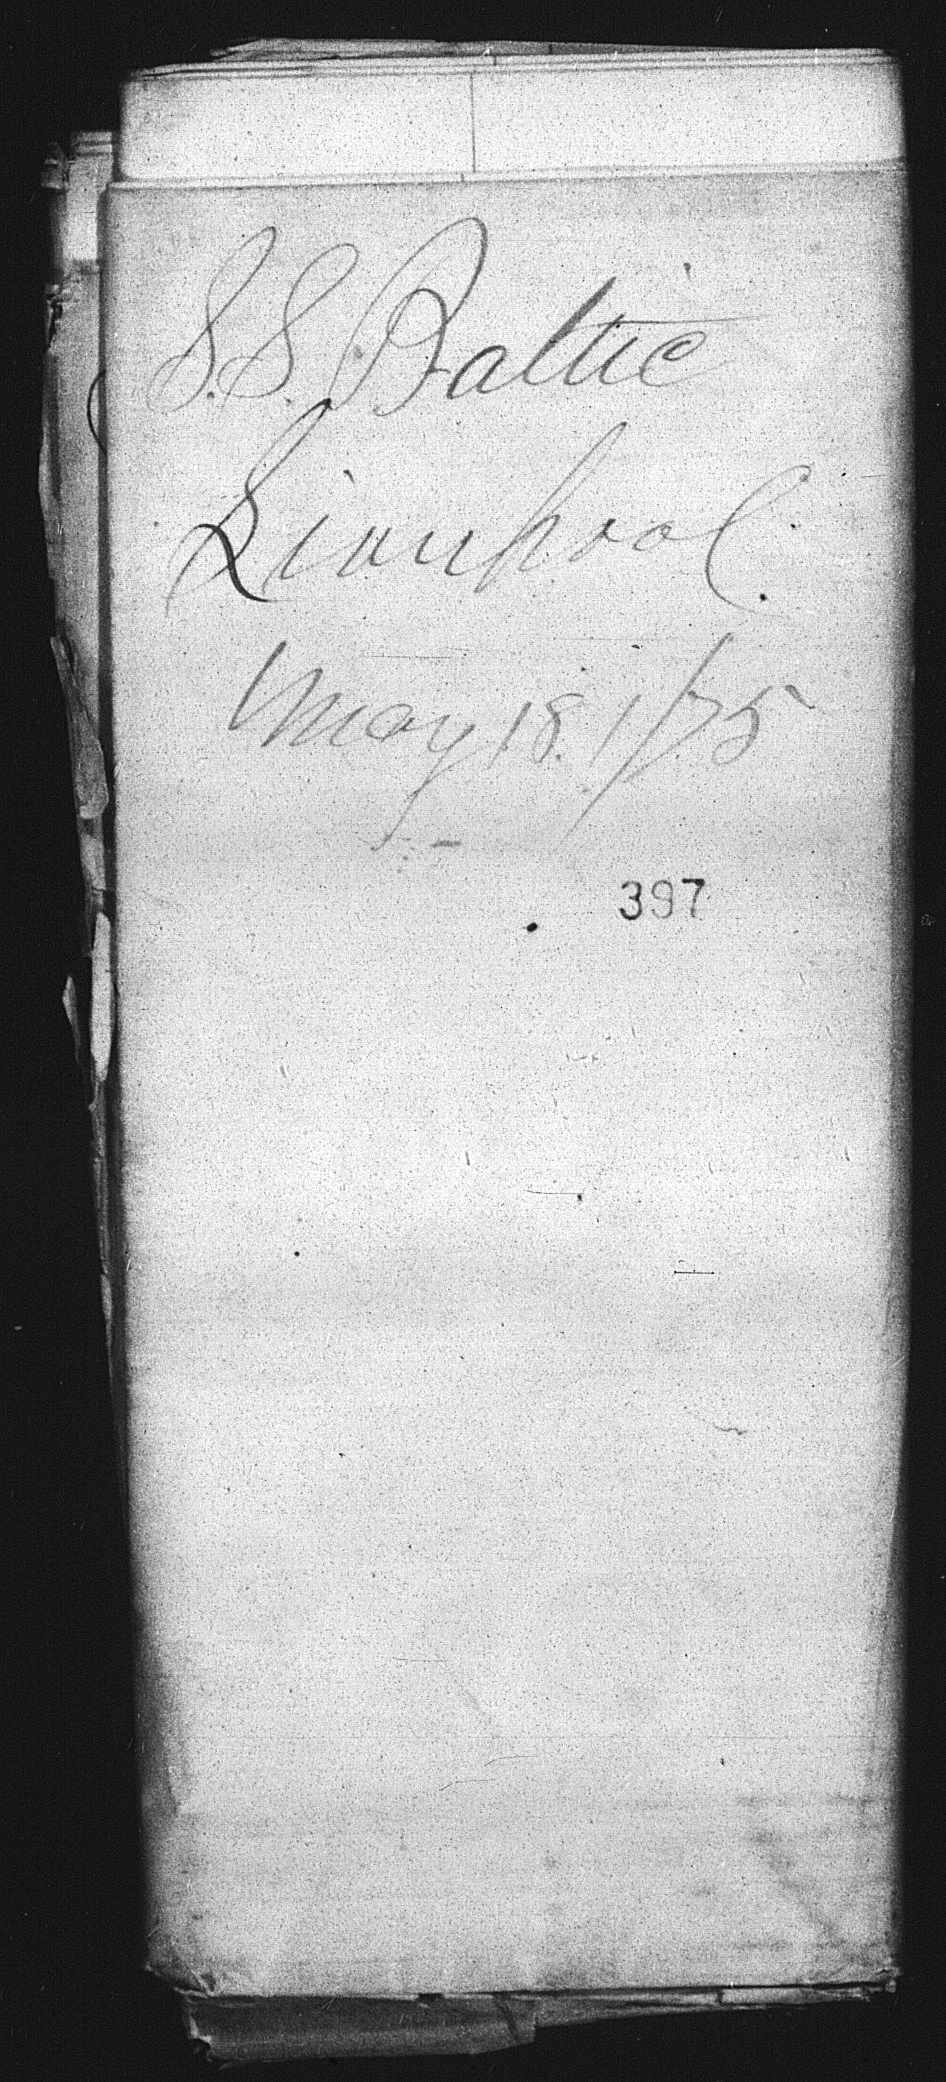 S.S. Baltic
Liverpool.
May 18. 1875
397